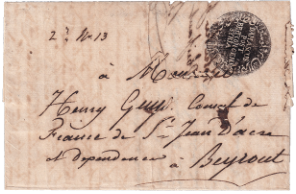 2ª Nº 13
à Monsieur
Henry Guys, Consul de
France de St Jean D'acre
et dependence à Beyrout